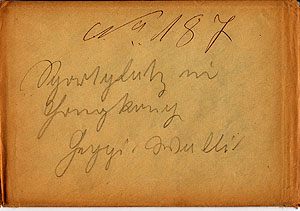 No 187
Sportplatz in
Hongkong
Heppi-Walli